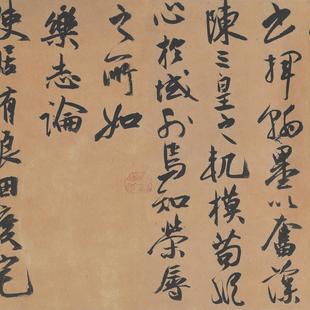 之揮翰墨以奮藻
陳三皇之軌模苟縱
心於域外焉知榮辱
之所如
樂志論
使居有良田廣宅